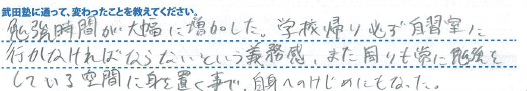 武田塾に通って、変わったことを教えてください。
勉強時間が大幅に増加した。学校帰り必ず自習室に
行かなければならないという義務感、また周りも常に勉強を
している空間に身を置く事で、自身へのけじめにもなった。